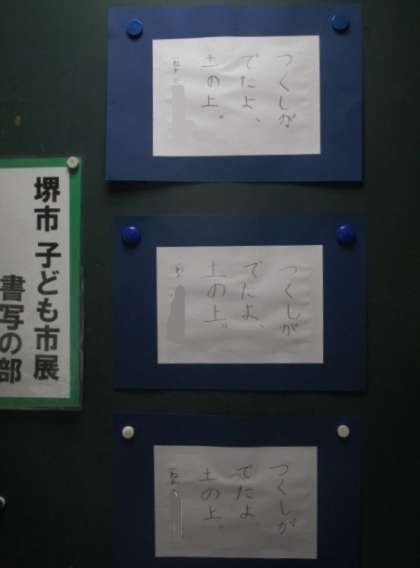 つくしが
でたよ、
土の上。
つくしが
でたよ、
土の上。
つくしが
でたよ、
土の上。
堺市 子ども市展
書写の部